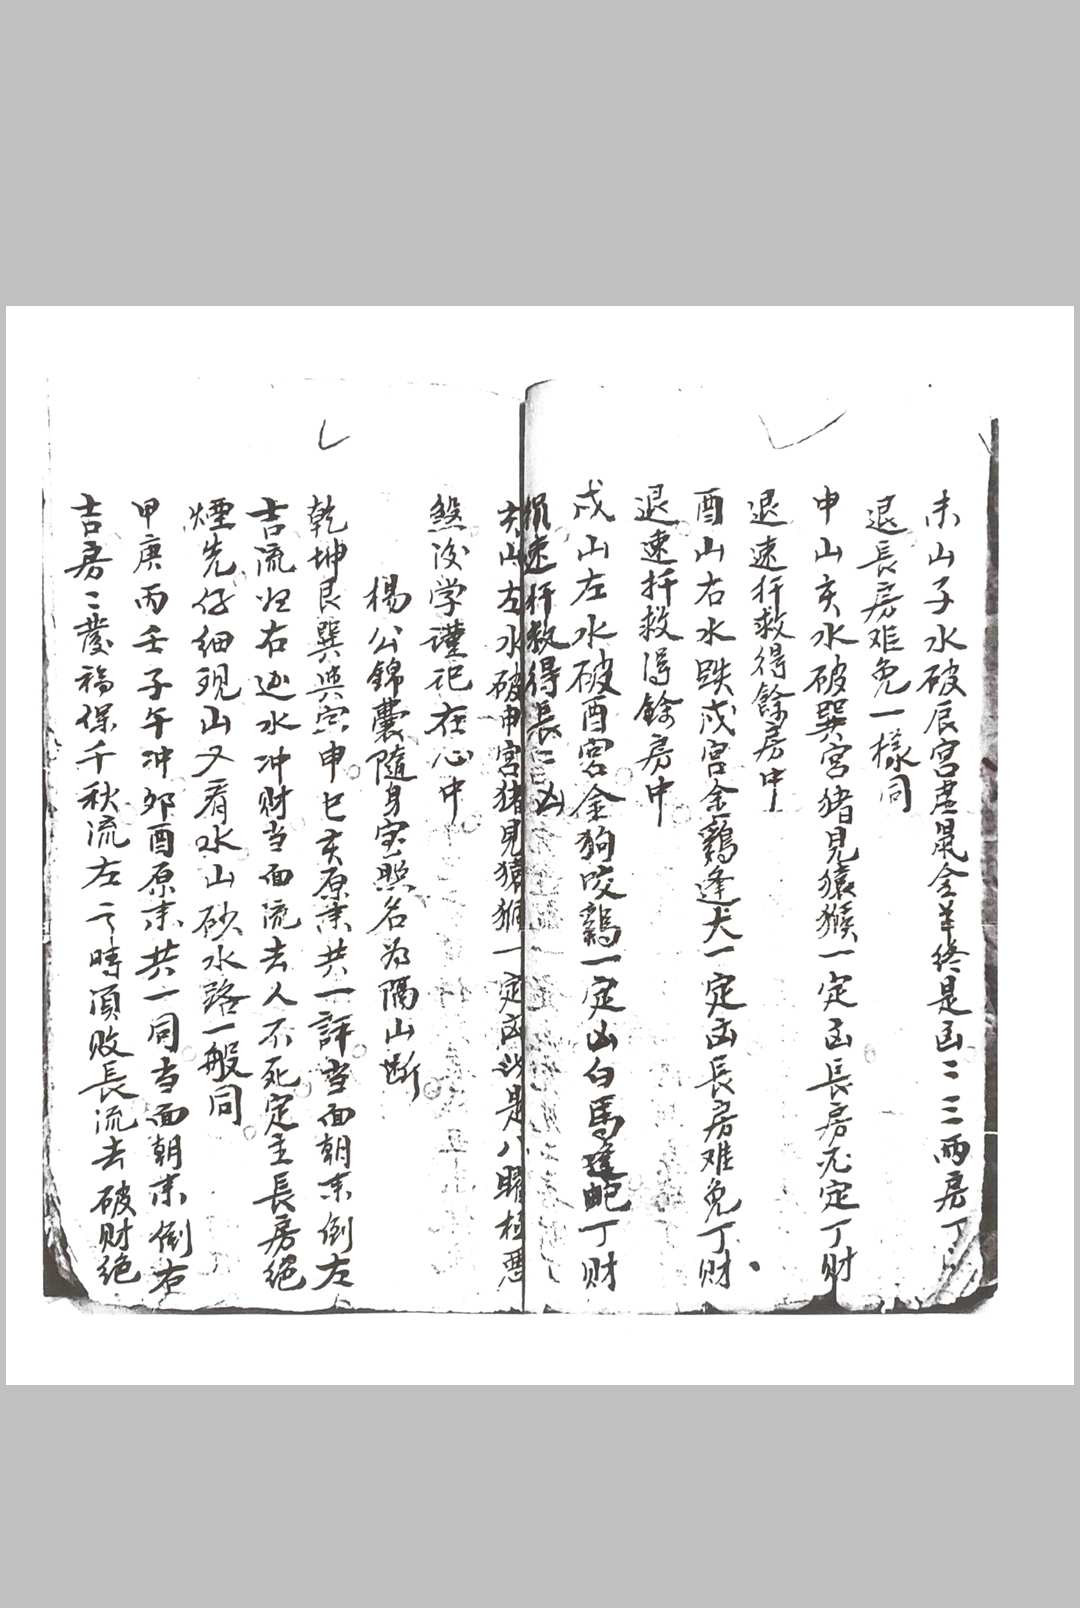 未山子水破辰宮鼠金羊終是凶二三兩房丁
退長房难免一樣同
申山亥水破巽宮猪見猿猴一定凶長房定丁财
退速扦救得餘房中
酉山右水跌戍宮金鷄逢犬一定凶長房难免丁财
退速扦救得餘房中
戍山左水破酉宮金狗咬鷄一定凶白馬逢蛇丁财
退速扦救得長二凶
亥山左水破申宮猪見猿猴一定凶此是八曜極恶
煞後学謹記在心中
楊公錦囊隨身宝照名为隔山断
乾坤艮巽與寅申巳亥原来共一評当面朝来倒左
吉流归右边水冲财当面流去人不死定主長房绝
煙先仔细观山又看水山砂水路一般同
甲庚丙壬子午冲卯酉原来共一同当面朝来倒右
吉房二發福保千秋流左之時須敗長流去破财绝